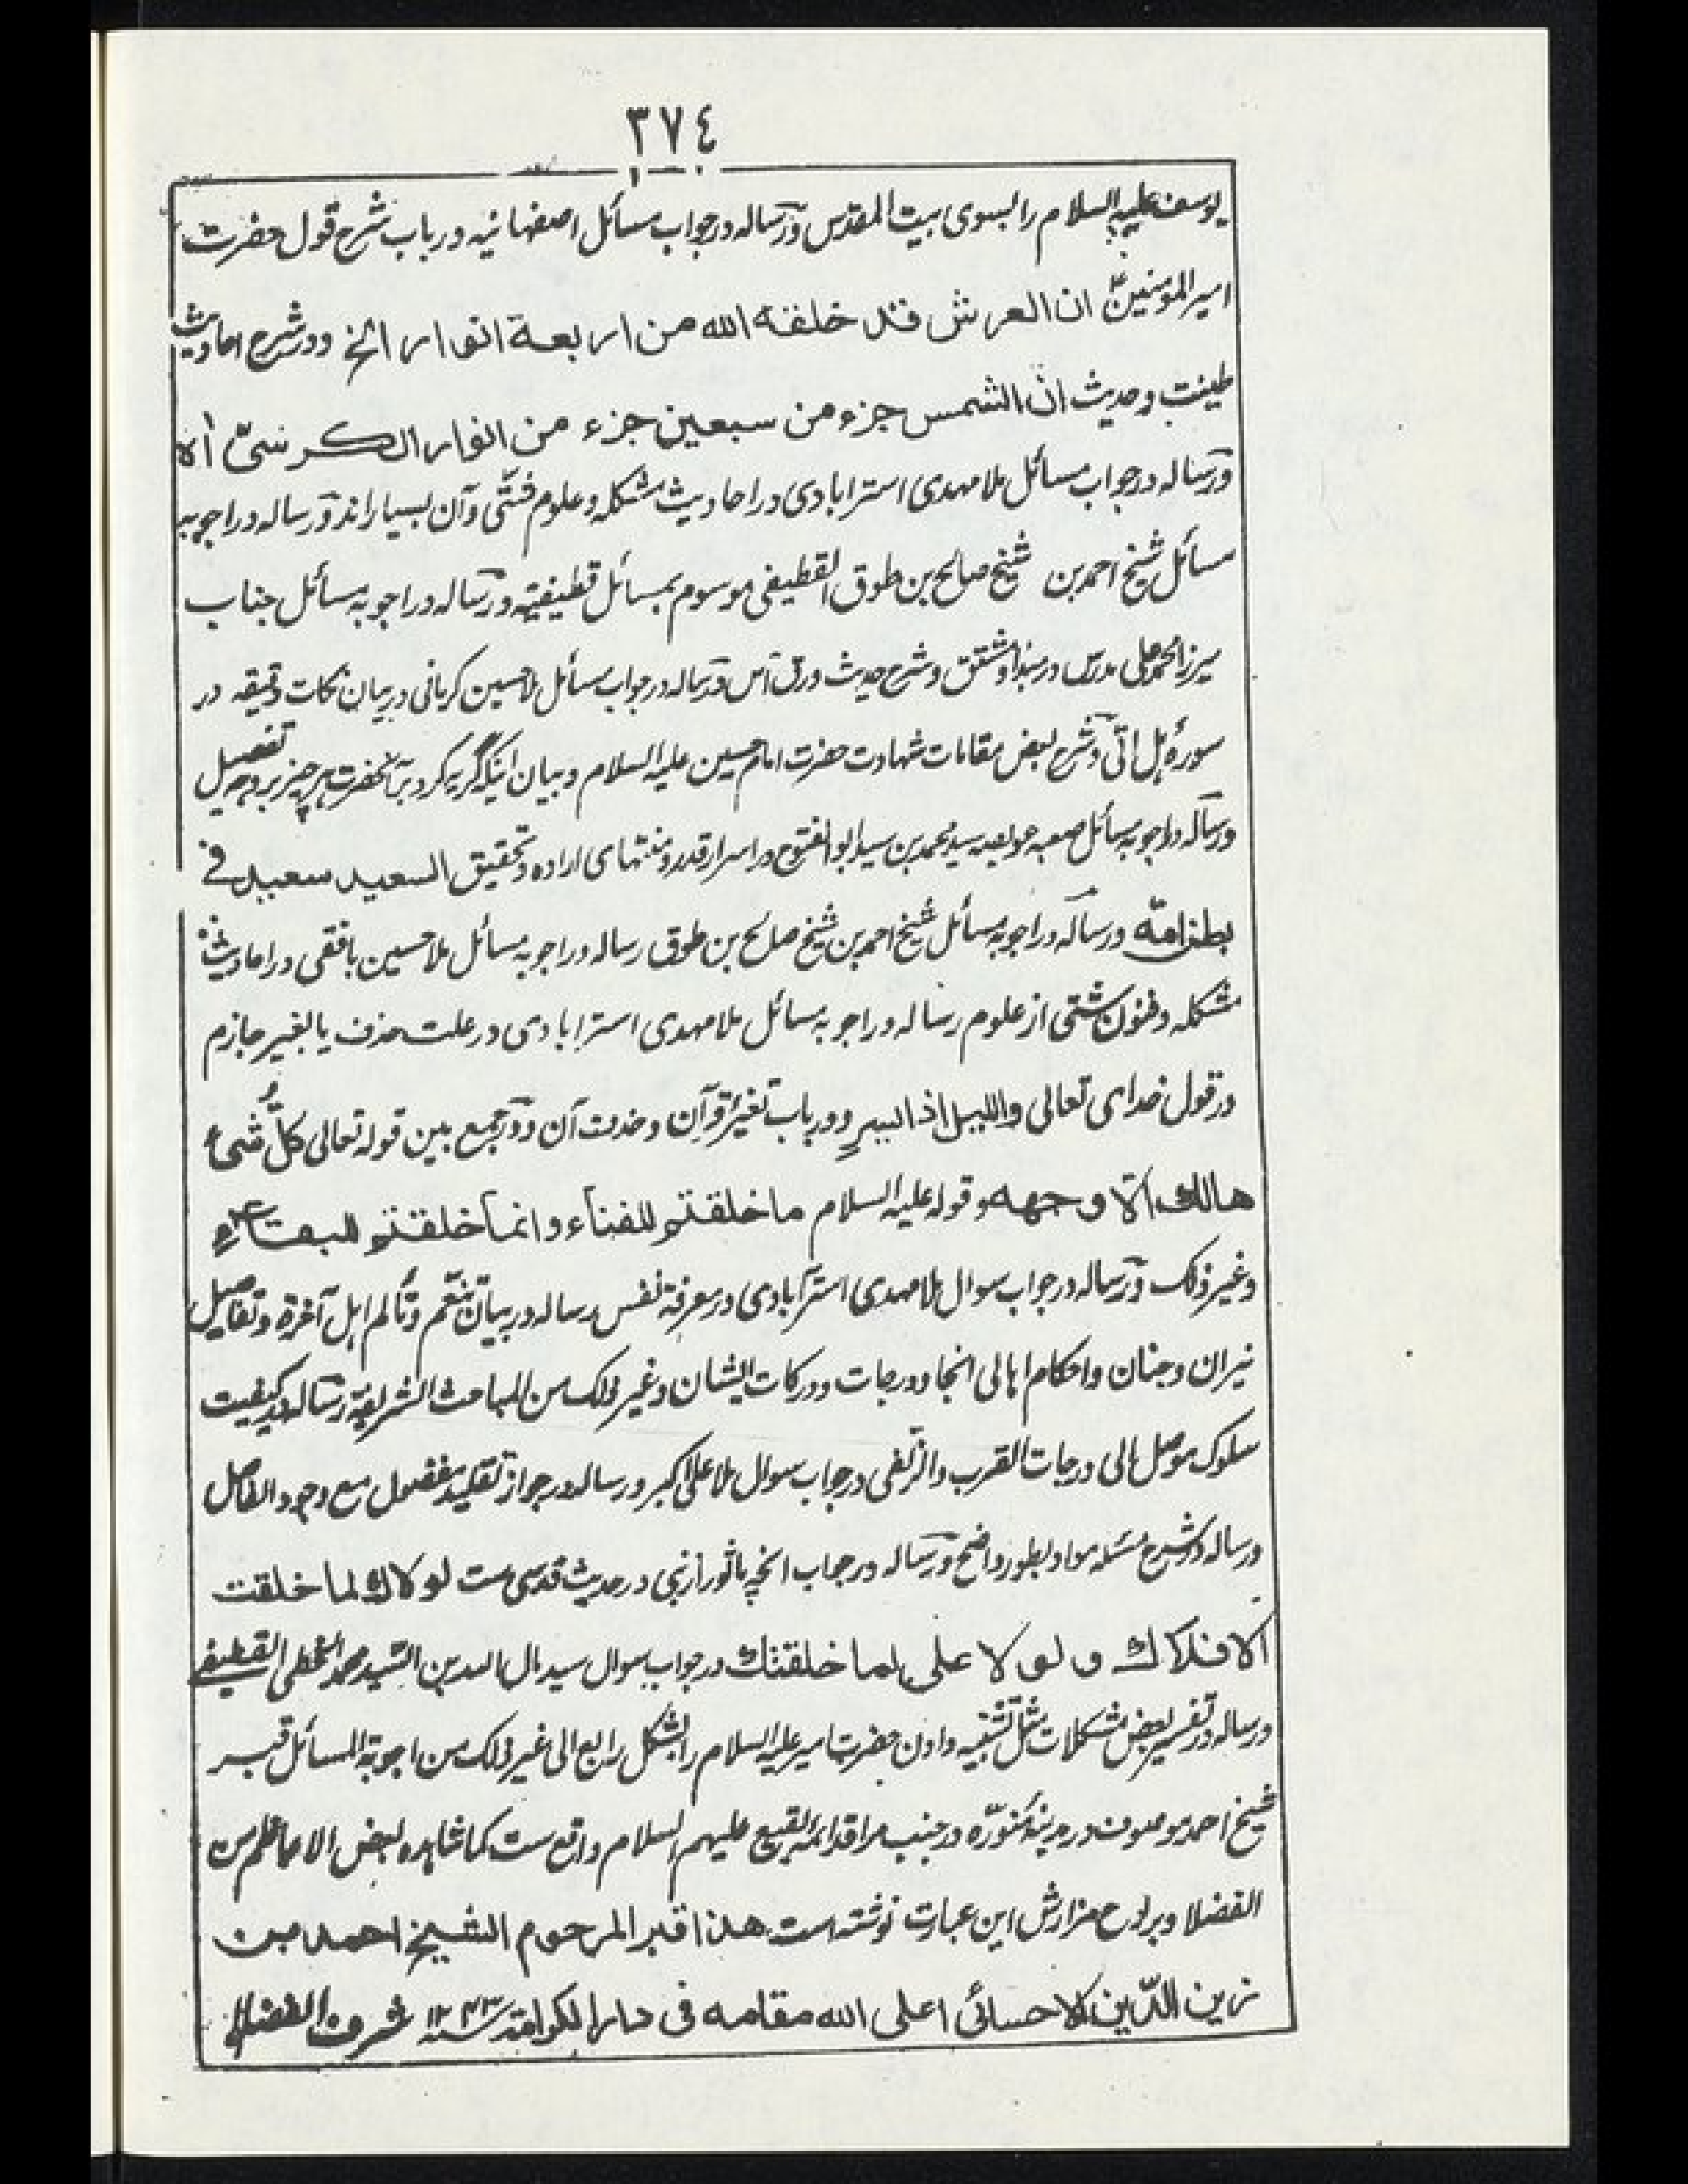 ٣٧٤
یوسف علیه السلام را بسوی بیت المقدس ورساله در جواب مسائل اصفهانیه در باب شرح قول حضرت
امیر المومنینؑ ان العرش قد خلقه الله من اربعة انوار الخ ودر شرح احادیث
طینت وحدیث ان الشمس جزء من سبعین جزء من انوار الکرسی الا
ورساله در جواب مسائل ملا مهدی استرابادی در احادیث مشکله وعلوم شتّی وآن بسیار اند ورساله در اجوبه
مسائل شیخ احمد بن شیخ صالح بن طوق القطیفی موسوم بمسائل قطیفیه ورساله در اجوبه مسائل جناب
میرزا محمد علی مدرس در مبدأ مشتق وشرح حدیث ورق آس ورساله در جواب مسائل ملا حسین کرمانی در بیان نکات دقیقه در
سورهٔ هل اتی وشرح بعض مقامات شهادت حضرت امام حسین علیه السلام وبیان اینکه گریه کرد بر آنحضرت هر چیز بر وجه تفصیل
ورساله در اجوبه مسائل صعبه عویصه سید محمد بن سید ابو الفتوح در اسرار قدر ومنتهای اراده وتحقیق السعید سعید فی
بطن امّه ورساله در اجوبه مسائل شیخ احمد بن شیخ صالح بن طوق رساله در اجوبه مسائل ملا حسین بافقی در احادیث
مشکله وفنون شتی از علوم رساله در اجوبه مسائل ملا مهدی استرابادی در علت حذف یا بغیر جازم
در قول خدای تعالی واللیل اذا یسرِ ودر باب تغیر قرآن وحذف آن ودر جمع بین قوله تعالی کلُّ شیء
هالك الّا وجهه وقوله علیه السلام ما خلقتم للفناء وانما خلقتم للبقاء
وغیر ذلک ورساله در جواب سوال ملا مهدی استرآبادی در معرفة نفس رساله در بیان تنعّم وتألم اهل آخرة وتفاصیل
نیران وجنان واحکام اهالی انجا ودرجات ودرکات ایشان وغیر ذلک من المباحث الشریفة رساله در کیفیت
سلوک موصل الی درجات القرب والزلفی در جواب سوال ملا علی اکبر ورساله در جواز تقلید مفضول مع وجود الفاضل
ورساله در شرح مسئله مواد بطور واضح ورساله در جواب انچه ماثور از نبی در حدیث قدسی ست لولاك لما خلقت
الافلاك ولولا علی لما خلقتك در جواب سوال سید بن السید محمد الخطی القطیفی
ورساله در تفسیر بعض مشکلات مثل تشبیه دادن حضرت امیر علیه السلام را بشکل رابع الی غیر ذلک من اجوبة المسائل قبر
شیخ احمد موصوف در مدینهٔ منوّره در جنب مراقد ائمه البقیع علیهم السلام واقع ست کما شاهده بعض الاعاظم من
الفضلا وبر لوح مزارش این عبارت نوشته است هذا قبر المرحوم الشیخ احمد بن
زین الدّین الاحسائی اعلی الله مقامه فی دار الکرامة سنه ١٢٤٣ شرف الفضلاء